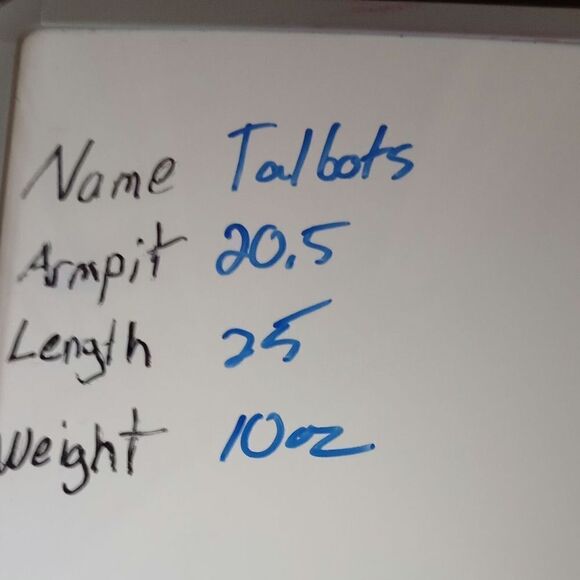 Name Talbots
Armpit 20.5
Length 25
Weight 10oz.